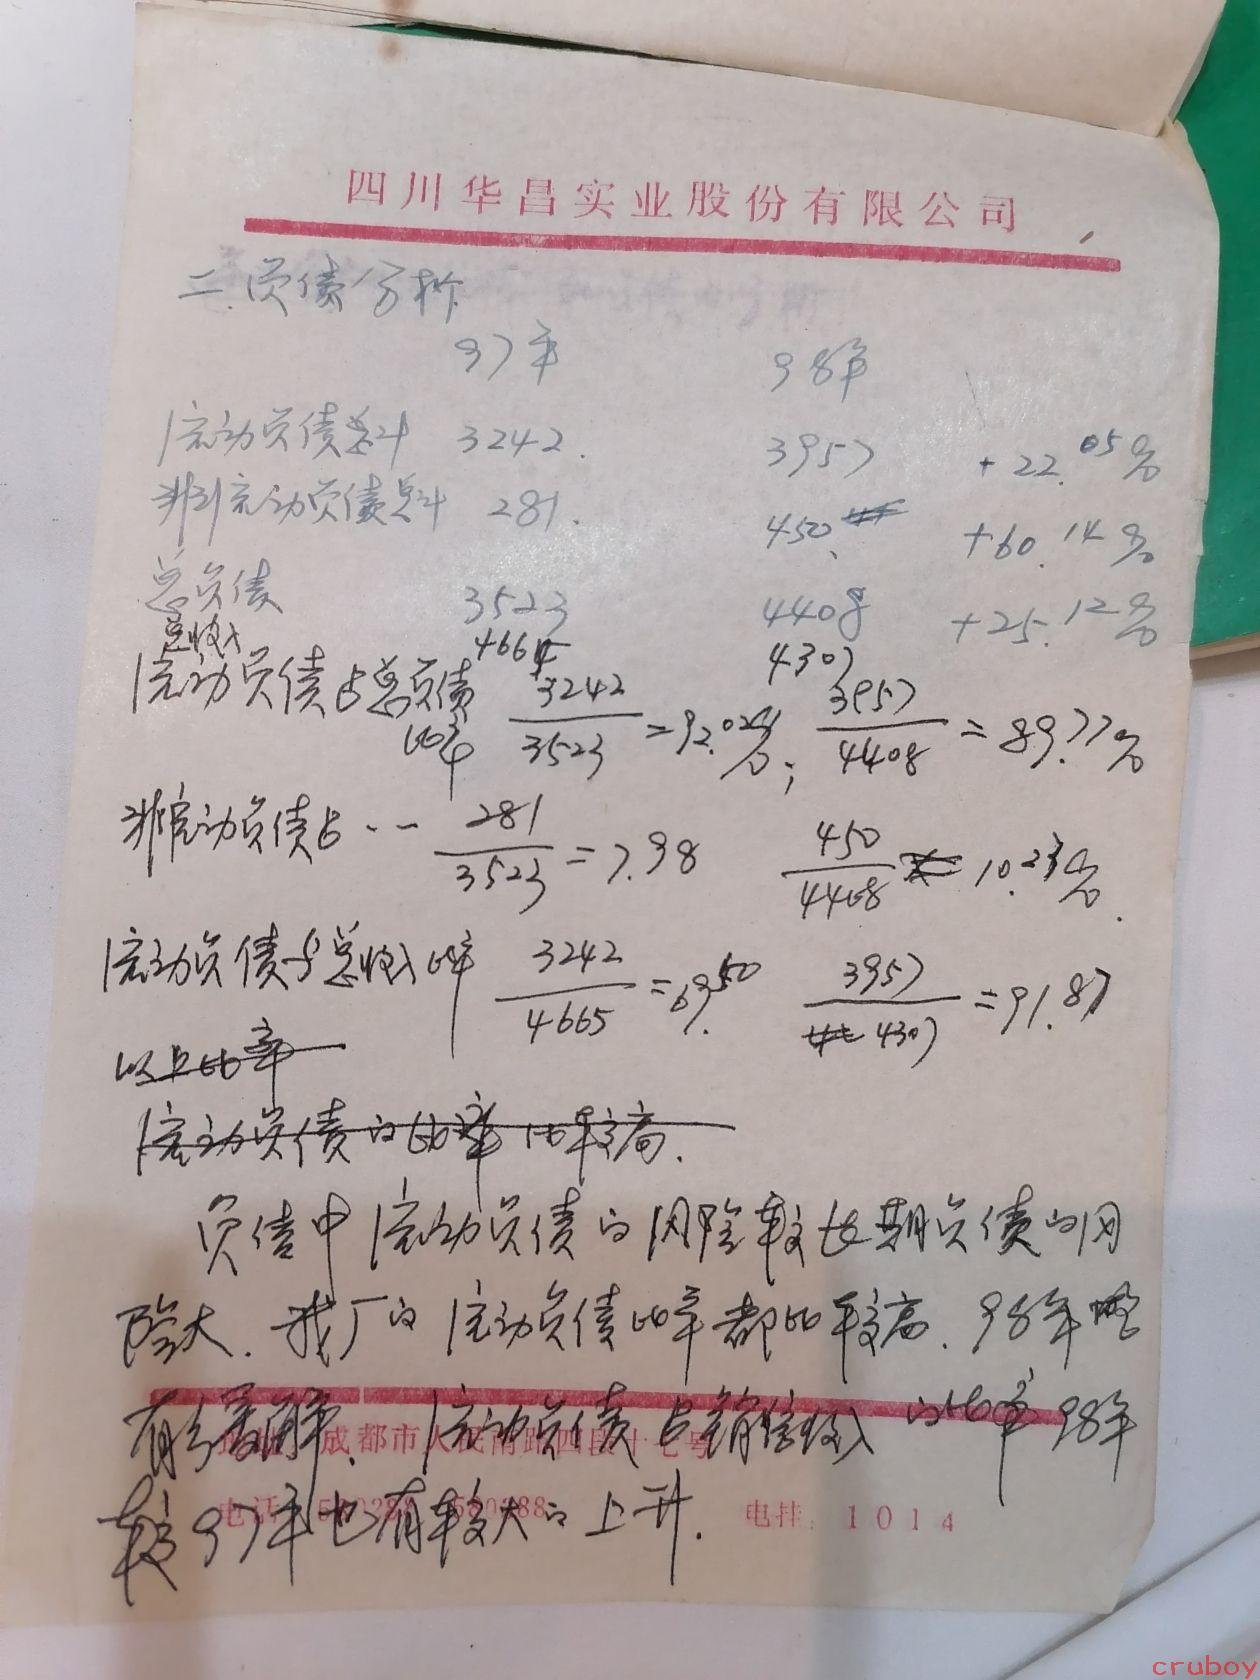 四川华昌实业股份有限公司
二.负债分析
97年 98年
流动负债总计 3242. 3957 +22.05%
非流动负债总计 281. 450. +60.14%
总负债 3523 4408 +25.12%
总收入 4665 4307
流动负债占总负债比率 3242/3523=92.02%; 3957/4408=89.77%
非流动负债占·-- 281/3523=7.98 450/4408= 10.23%.
流动负债与总收入比率 3242/4665=69.50 3957/4307=91.87
以上比率
流动负债的比率比较高.
负债中流动负债的风险较长期负债的风
险大.我厂的流动负债比率都比较高.98年略
有缓解.流动负债占销售收入的比率98年
较97年也有较大的上升.
成都市人民南路四段十七号
电话 580288 580888 电挂:1014
cruboy